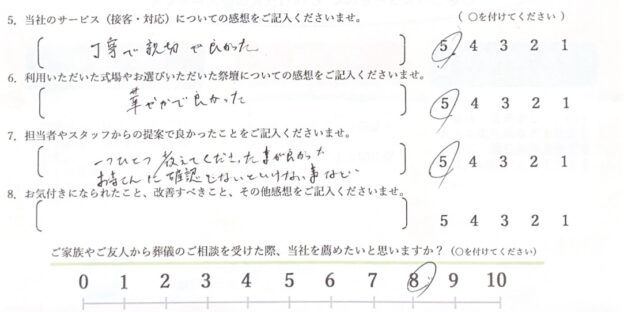 5, 当社のサービス（接客・対応）についての感想をご記入くださいませ。 （ ○を付けてください ）
丁寧で親切で良かった 5 4 3 2 1
6, 利用いただいた式場やお選びいただいた祭壇についての感想をご記入くださいませ。
華やかで良かった 5 4 3 2 1
7, 担当者やスタッフからの提案で良かったことをご記入くださいませ。
一つひとつ教えてくださった事が良かった 5 4 3 2 1
お寺さんに確認しないといけない事など
8, お気付きになられたこと、改善すべきこと、その他感想をご記入くださいませ。
5 4 3 2 1
ご家族やご友人から葬儀のご相談を受けた際、当社を薦めたいと思いますか？（○を付けてください）
0 1 2 3 4 5 6 7 8 9 10